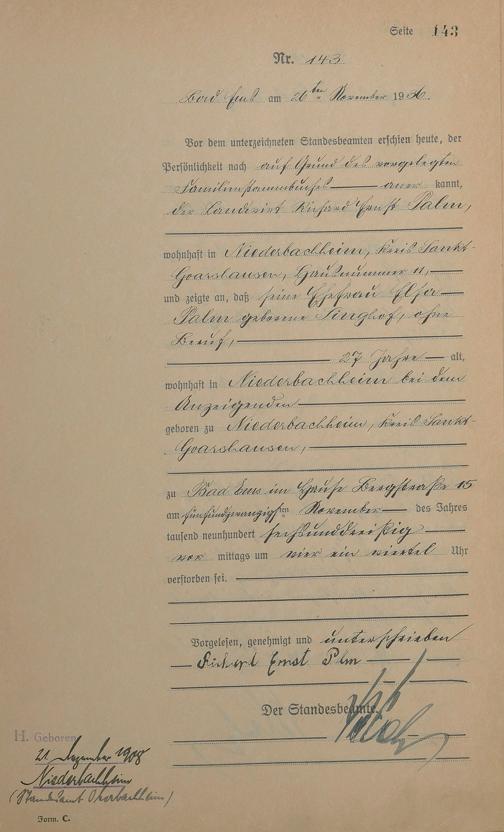 Seite 143
Nr. 143.
Bad Ems am 26ten November 1936.
Vor dem unterzeichneten Standesbeamten erschien heute, der
Persönlichkeit nach auf Grund des vorgelegten
Familienstammbuches aner kannt,
der Landwirt Richard Ernst Palm,
wohnhaft in Niederbachheim, Kreis Sankt-
Goarshausen, Hausnummer 11,
und zeigte an, daß seine Ehefrau Elsa
Palm geborene Singhof, ohne
Beruf,
27 Jahre alt,
wohnhaft in Niederbachheim bei dem
Anzeigenden
geboren zu Niederbachheim, Kreis Sankt-
Goarshausen,
zu Bad Ems im Hause Bergstraße 15
am fünfundzwanzigsten November des Jahres
tausend neunhundert sechsunddreißig
vor mittags um vier ein viertel Uhr
verstorben sei.
Vorgelesen, genehmigt und unterschrieben
Richard Ernst Palm
Der Standesbeamte.
H. Geboren
21. Dezember 1908
Niederbachheim
(Standesamt Oberbachheim)
Form. C.